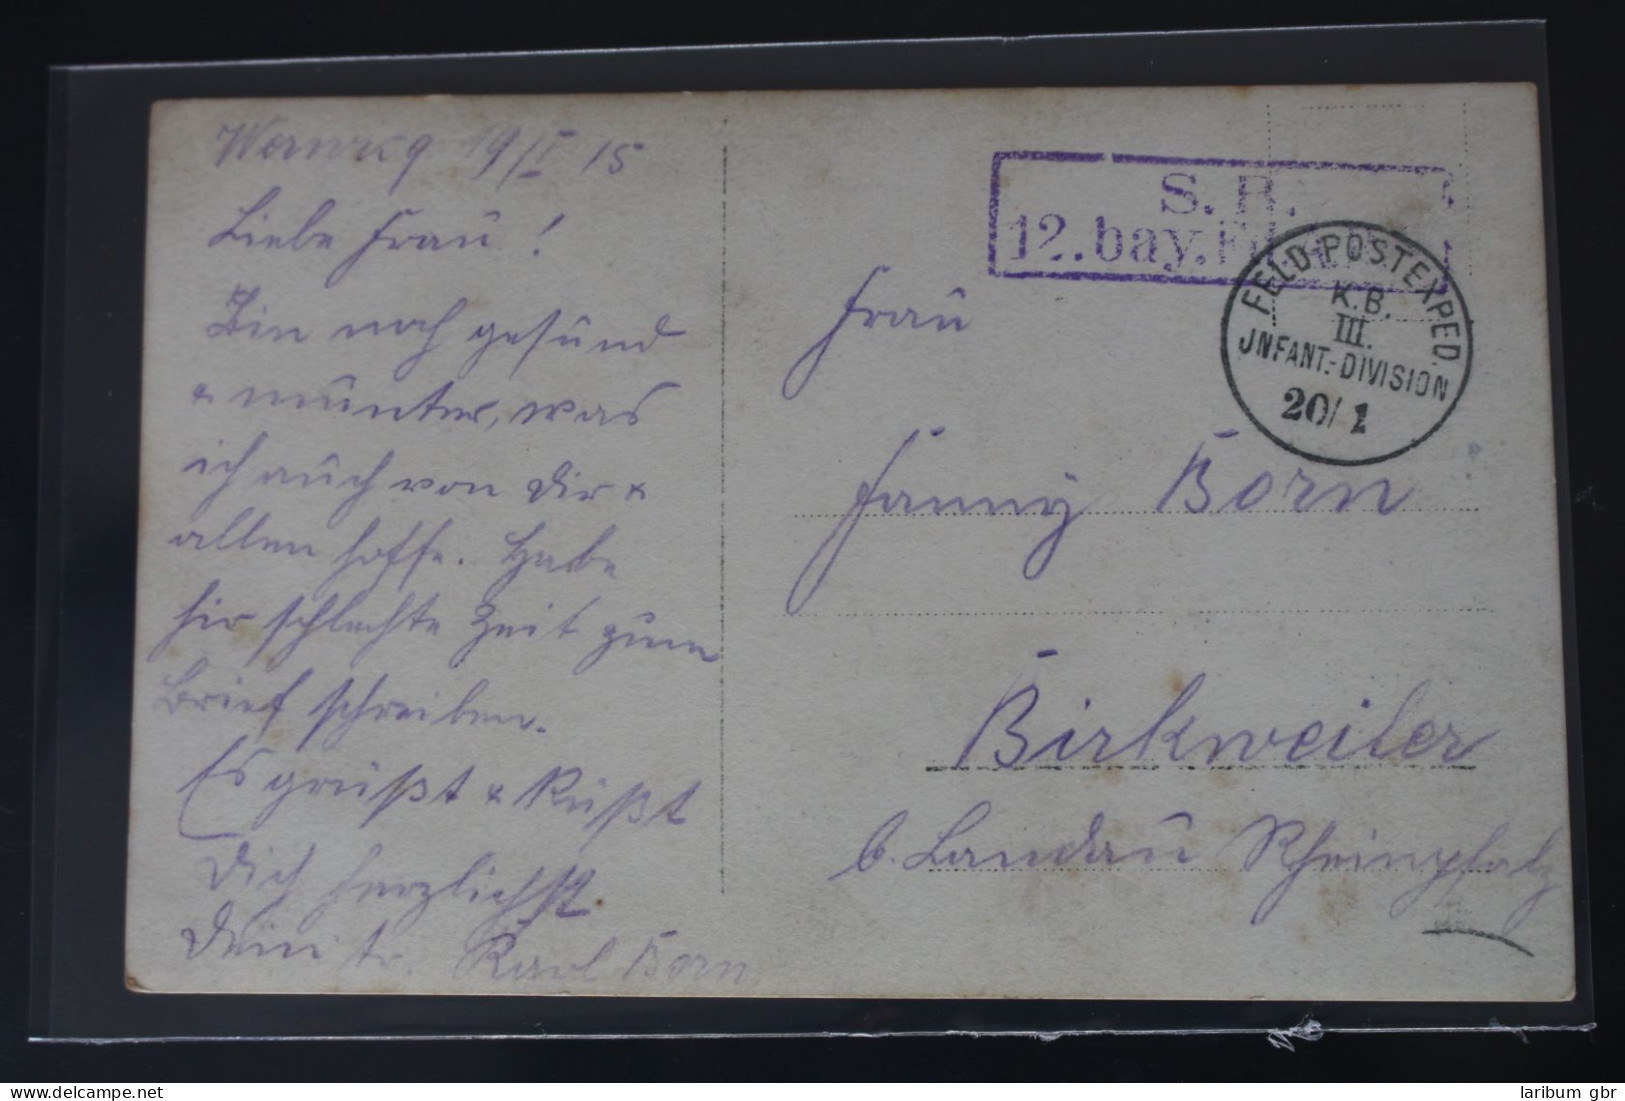 Wervicq 19/I 15
Liebe Frau!
Bin noch gesund
& munter, was
ich auch von Dir &
allen hoffe. Habe
hir schlechte Zeit zum
Brief schreiben.
Es grüßt & Küßt
Dich herzlichst
Dein tr. Karl Born
S. B.
12. bay.
FELD-POSTEXPED.
K.B.
III.
JNFANT.-DIVISION
20/1
Frau
Fanny Born
Birkweiler
b. Landau Rheinpfalz
delcampe.net
laribum gbr